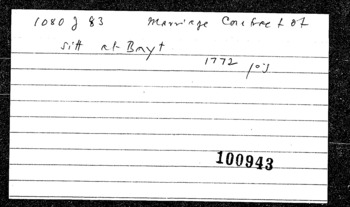 1080 J 83 Marriage Contract of
Sitt al-Bayt
1772
100943